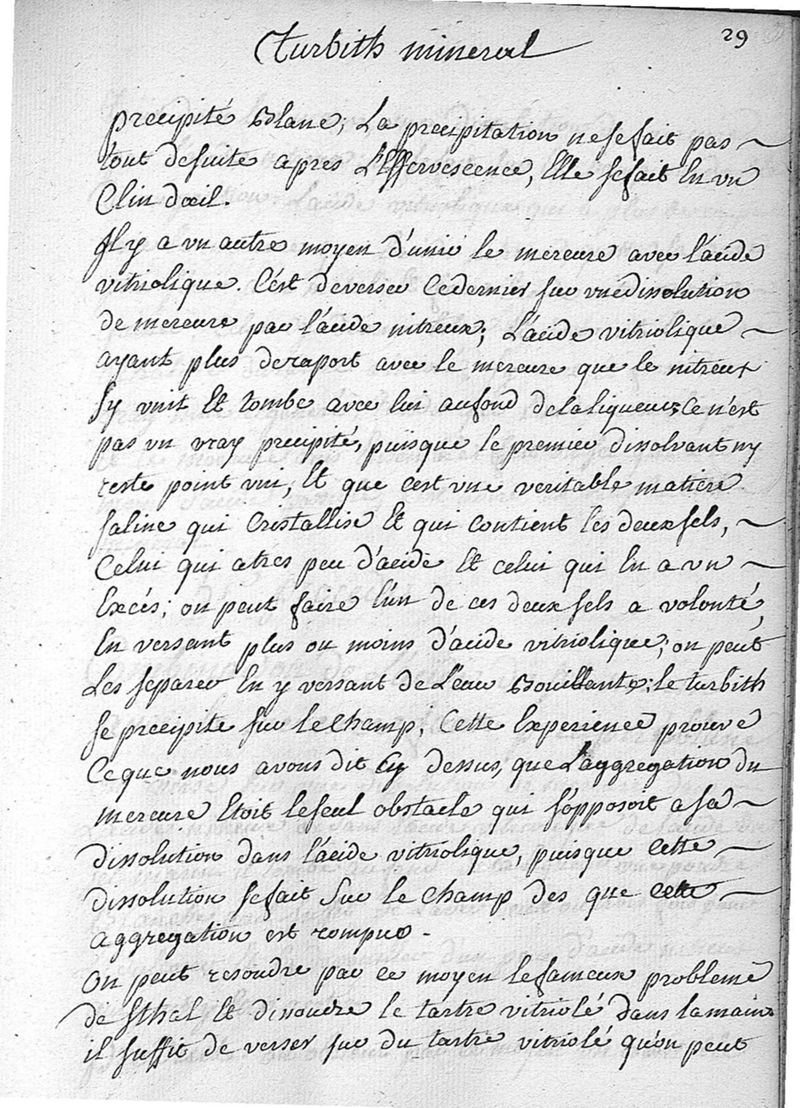 29
Turbith mineral
précipité Blanc; La precipitation ne se fait pas
tout de suite apres L'Effervescence, Elle se fait En un
Clin d'œil.
Il y a un autre moyen d'unir le mercure avec l'acide
vitriolique. C'est de verser Ce dernier sur une dissolution
de mercure par l'acide nitreux; L'acide vitriolique
ayant plus de raport avec le mercure que le nitreux
S'y unit Et tombe avec lui au fond de la liqueur; Ce n'est
pas un vray precipité, puisque le premier dissolvant n'y
reste point uni, Et que c'est une veritable matiere
saline qui Cristallise Et qui Contient les deux sels,
Celui qui a tres peu d'acide Et celui qui En a un
Excés; on peut faire l'un de ces deux sels a volonté,
En versant plus ou moins d'acide vitriolique; on peut
Les separer En y versant de L'eau Bouillante; le turbith
se precipite sur le Champ; Cette Experience prouve
Ce que nous avons dit Cy dessus, que L'aggregation du
mercure Etoit le seul obstacle qui s'opposoit a sa
dissolution dans l'acide vitriolique, puisque cette
dissolution se fait sur le champ des que cette
aggregation est rompue.
On peut resoudre par ce moyen le fameux probleme
de Sthal Et dissoudre le tartre vitriolé dans la main
il suffit de verser sur du tartre vitriolé qu'on peut